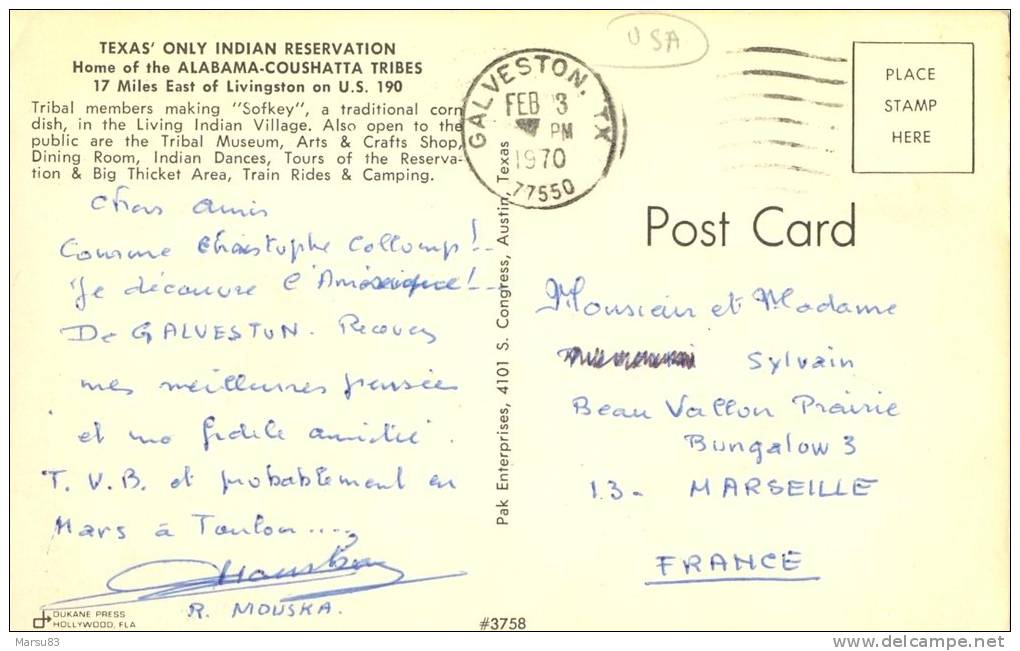 TEXAS' ONLY INDIAN RESERVATION
Home of the ALABAMA-COUSHATTA TRIBES
17 Miles East of Livingston on U.S. 190
Tribal members making "Sofkey", a traditional corn
dish, in the Living Indian Village. Also open to the
public are the Tribal Museum, Arts & Crafts Shop,
Dining Room, Indian Dances, Tours of the Reserva-
tion & Big Thicket Area, Train Rides & Camping.
Chers amis
Comme Christophe Collomp!..
Je découvre l'Amérique!..
De GALVESTON. Recevez
mes meilleures pensées
et ma fidele amitié.
T. V. B. et probablement en
Mars à Toulon....
R. MOUSKA.
DUKANE PRESS
HOLLYWOOD, FLA
Pak Enterprises, 4101 S. Congress, Austin, Texas
#3758
USA
GALVESTON, TX
FEB 3
PM
1970
77550
PLACE
STAMP
HERE
Post Card
Monsieur et Madame
Sylvain
Beau Vallon Prairie
Bungalow 3
13- MARSEILLE
FRANCE
Marsu83
www.delcampe.net